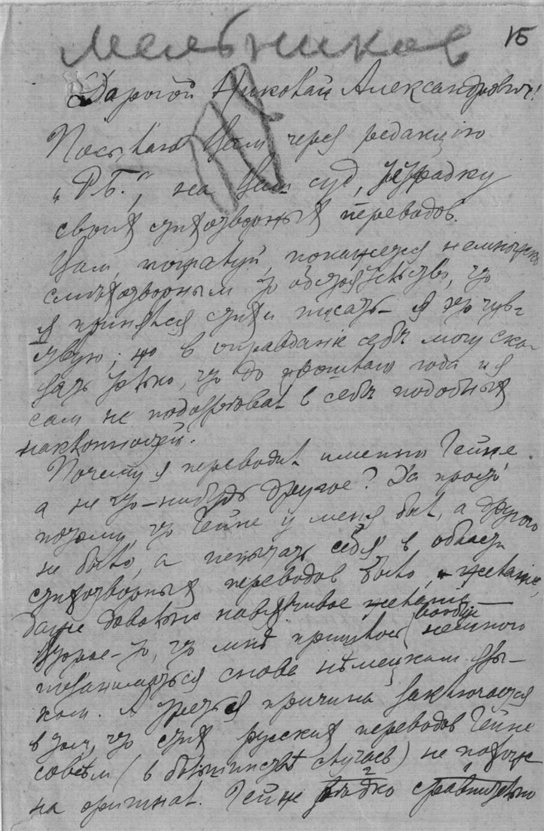 Мельников
15
Дорогой Николай Александрович!
Посылаю Вам через редакцию
"РБ.", на Ваш суд, тетрадку
своих стихотворных переводов.
Вам, пожалуй, покажется немножко
смехотворным то обстоятельство, что
я принялся стихи писать – я это чув-
ствую; но в оправдание себе могу ска-
зать только, что до прошлаго года и я
сам не подозревал в себе подобных
наклонностей.
Почему я переводил именно Гейне
а не что-нибудь другое? Да просто
потому, что Гейне у меня был, а другого
не было, а испытать себя в области
стихотворных переводов было желание,
даже довольно навязчивое,
Второе-то, что мне пришлось вообще немного
позаниматься снова немецким язы-
ком. А третья причина заключается
в том, что стихи русских переводов Гейне
совсем (в большинстве случаев) не похожи
на оригинал. Гейне сравнительно